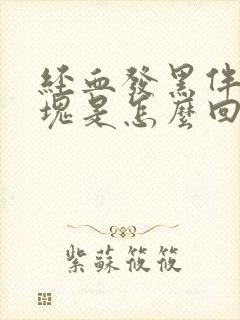 經血發黑伴
塊是怎麼回
紫蘇筱筱